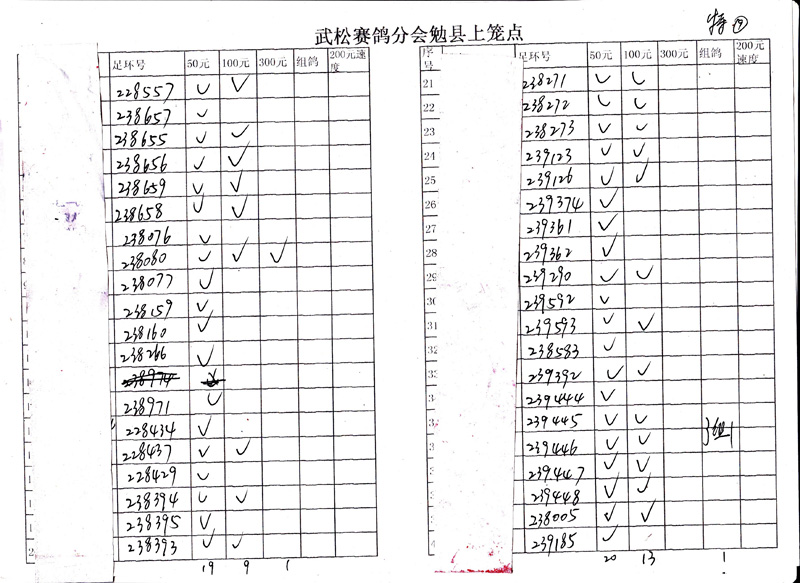 特四
武松赛鸽分会勉县上笼点
足环号 50元 100元 300元 组鸽 200元速度
228557 ✓ ✓
238657 ✓
238655 ✓ ✓
238656 ✓ ✓
238659 ✓ ✓
238658 ✓ ✓
238076 ✓
238080 ✓ ✓ ✓
238077 ✓
238159 ✓
238160 ✓
238266 ✓
238974 ✓
238971 ✓
228434 ✓
228437 ✓ ✓
228429 ✓
238394 ✓ ✓
238395 ✓
238393 ✓ ✓
19 9 1
序号 足环号 50元 100元 300元 组鸽 200元速度
21 238271 ✓ ✓
22 238272 ✓ ✓
23 238273 ✓ ✓
24 239123 ✓ ✓
25 239126 ✓ ✓
26 239374 ✓
27 239361 ✓
28 239362 ✓
29 239290 ✓ ✓
30 239592 ✓
31 239593 ✓ ✓
32 238583 ✓
33 239392 ✓ ✓
239444 ✓
239445 ✓ ✓
239446 ✓ ✓ }组1
239447 ✓ ✓
239448 ✓ ✓
238005 ✓ ✓
239185 ✓
20 13 1